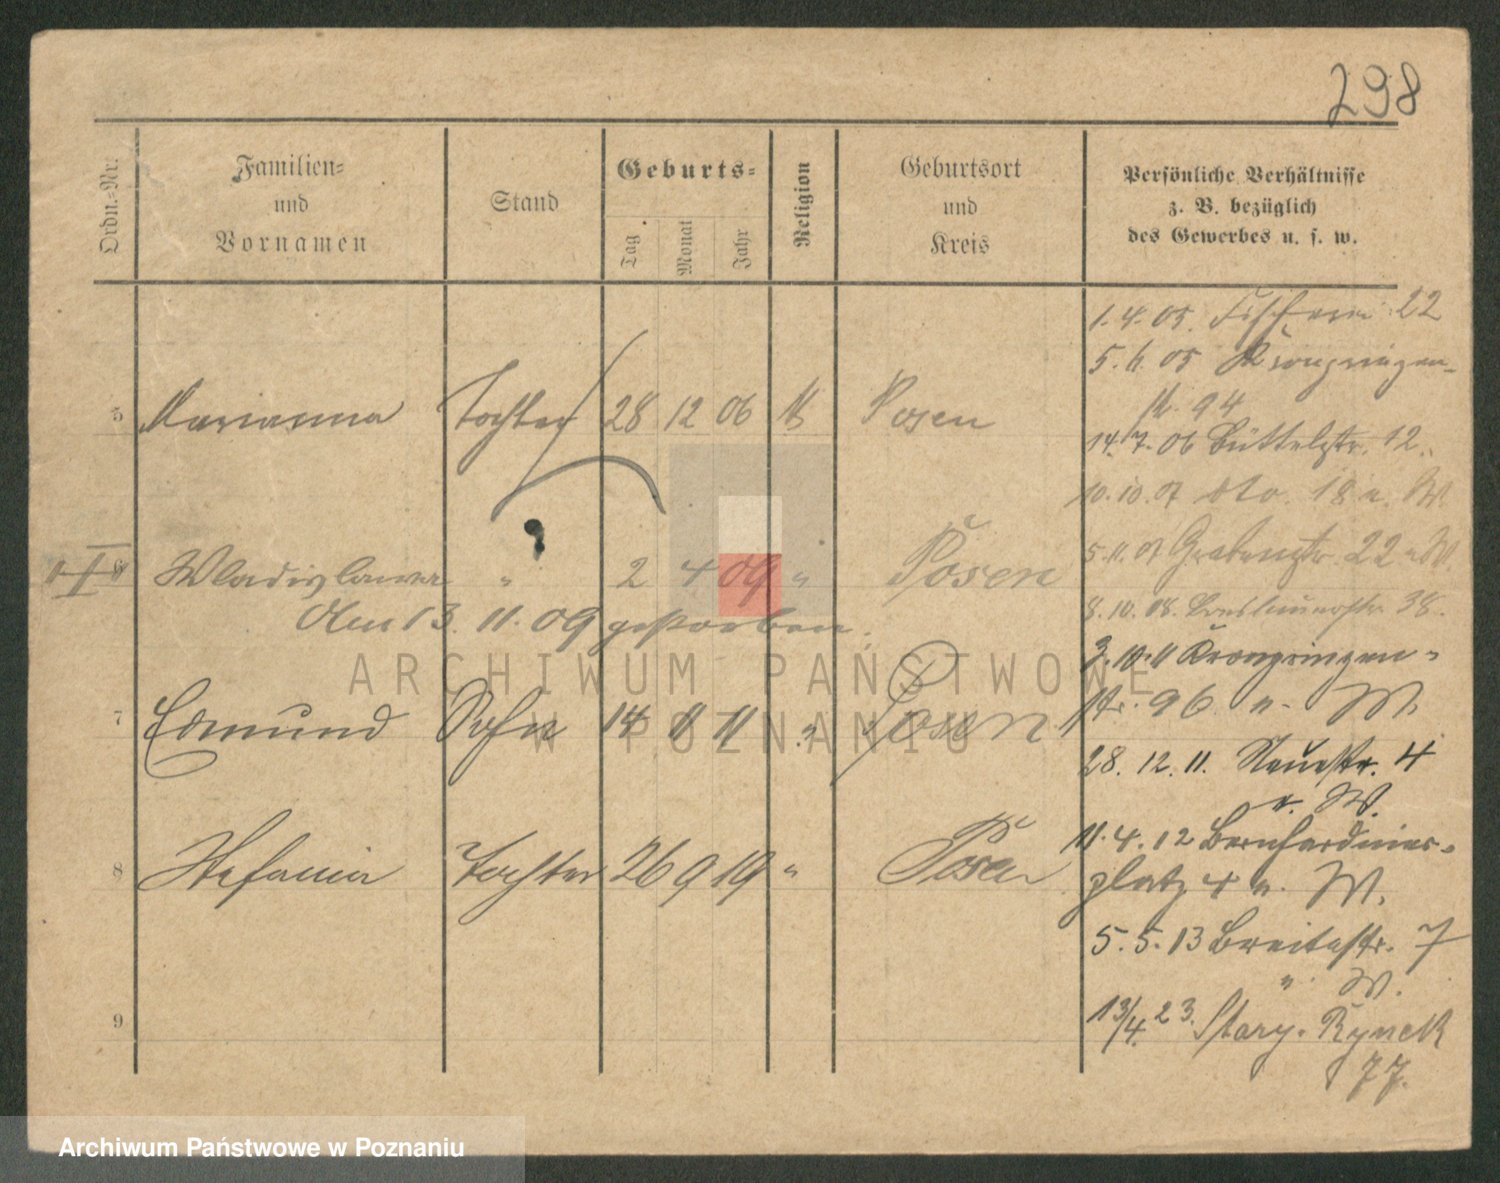 298
Ordn.-Nr.
Familien-
und
Vornamen
Stand
Geburts-
Tag
Monat
Jahr
Religion
Geburtsort
und
Kreis
Persönliche Verhältnisse
z. B. bezüglich
des Gewerbes u. s. w.
5 Marianna Tochter 28 12 06 Posen
6 Wladislawa " 2 4 09 " Posen
Am 13. 11. 09 gestorben.
7 Edmund Sohn 14 11 11 " Posen
8 Stefania Tochter 26 9 19 " Posen
9
1.4.05. Fischerei 22
5.6.05 Kronprinzen-
str. 94
14.7.06 Büttelstr. 12.
10.10.07 dto. 18 u. W.
5.11.07 Grabenstr. 22 u. W.
8.10.08. Breslauerstr. 38.
3.10.11 Kronprinzen-
str. 96 u. W.
28.12.11. Neuestr. 4
u. W.
11.4.12 Bernhardiner-
platz 4 u. W.
5.5.13 Breitestr. 7
u. W.
13/4. 23. Stary. Rynek
77.
ARCHIWUM PAŃSTWOWE
W POZNANIU
Archiwum Państwowe w Poznaniu